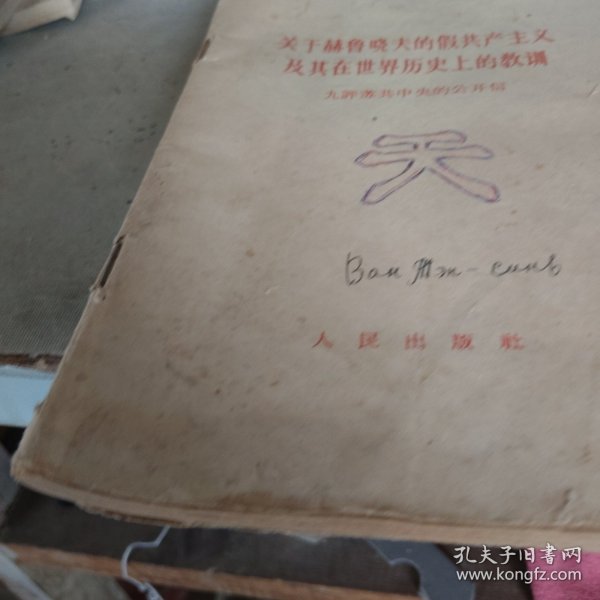 关于赫鲁晓夫的假共产主义
及其在世界历史上的教训
九评苏共中央的公开信
天
Ван Тт-синь
人民出版社
孔夫子旧书网
www.kongfz.com